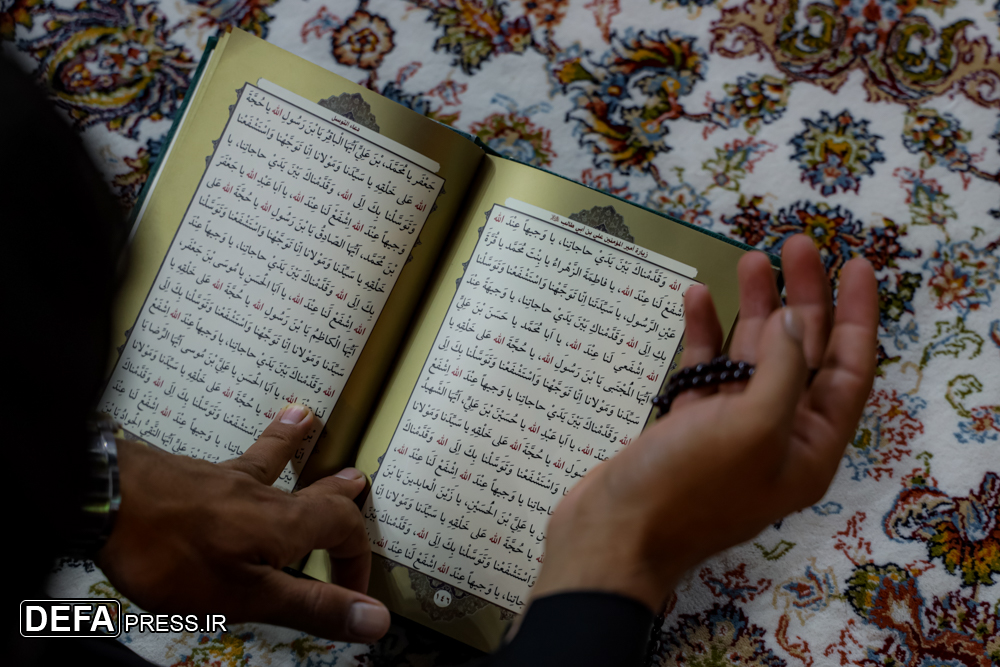 زيارة امير المؤمنين علي بن ابي طالب
اللهِ وَقَدَّمْناكَ بَيْنَ يَدَيْ حاجاتِنا، يا وَجيهاً عِنْدَ اللهِ
اِشْفَعْ لَنا عِنْدَ اللهِ، يا فاطِمَةُ الزَّهْراءُ يا بِنْتَ مُحَمَّدٍ يا قُرَّةَ
عَيْنِ الرَّسُولِ، يا سَيِّدَتَنا وَمَوْلاتَنا اِنّا تَوَجَّهْنا وَاسْتَشْفَعْنا وَتَوَسَّلْنا
بِكِ اِلَى اللهِ وَقَدَّمْناكِ بَيْنَ يَدَيْ حاجاتِنا، يا وَجيهَةً عِنْدَ
اللهِ اِشْفَعي لَنا عِنْدَ اللهِ، يا اَبا مُحَمَّدٍ يا حَسَنَ بْنَ عَلِيٍّ
اَيُّهَا الْمُجْتَبى يَا بْنَ رَسُولِ اللهِ، يا حُجَّةَ اللهِ عَلى خَلْقِهِ يا
سَيِّدَنا وَمَوْلانا اِنّا تَوَجَّهْنا وَاسْتَشْفَعْنا وَتَوَسَّلْنا بِكَ اِلَى
اللهِ وَقَدَّمْناكَ بَيْنَ يَدَيْ حاجاتِنا يا وَجيهاً عِنْدَ اللهِ اِشْفَعْ لَنا
عِنْدَ اللهِ، يا اَبا عَبْدِ اللهِ يا حُسَيْنَ بْنَ عَلِيٍّ، اَيُّهَا الشَّهيدُ
اللهِ يا حُجَّةَ اللهِ عَلى خَلْقِهِ يا سَيِّدَنا وَمَوْلانا
وَاسْتَشْفَعْنا وَتَوَسَّلْنا بِكَ اِلَى اللهِ وَقَدَّمْناكَ
حاجاتِنا يا وَجيهاً عِنْدَ اللهِ اِشْفَعْ لَنا عِنْدَ اللهِ،
عَلِيَّ بْنَ الْحُسَيْنِ، يا زَيْنَ الْعابِدينَ يَا بْنَ
حُجَّةَ اللهِ عَلى خَلْقِهِ يا سَيِّدَنا وَمَوْلانا اِنّا
وَتَوَسَّلْنا بِكَ اِلَى اللهِ، وَقَدَّمْناكَ بَيْنَ
حاجاتِنا، يا وَجيهاً عِنْدَ اللهِ اِشْفَعْ لَنا عِنْدَ اللهِ،
١٤٦
دعاء التوسل
جَعْفَرٍ يا مُحَمَّدَ بْنَ عَلِيٍّ اَيُّهَا الْباقِرُ يَا بْنَ رَسُولِ اللهِ يا حُجَّةَ
اللهِ عَلى خَلْقِهِ يا سَيِّدَنا وَمَوْلانا اِنّا تَوَجَّهْنا وَاسْتَشْفَعْنا
وَتَوَسَّلْنا بِكَ اِلَى اللهِ، وَقَدَّمْناكَ بَيْنَ يَدَيْ حاجاتِنا، يا
وَجيهاً عِنْدَ اللهِ اِشْفَعْ لَنا عِنْدَ اللهِ، يا اَبا عَبْدِ اللهِ يا جَعْفَرَ
بْنَ مُحَمَّدٍ، اَيُّهَا الصّادِقُ يَا بْنَ رَسُولِ اللهِ يا حُجَّةَ اللهِ عَلى
خَلْقِهِ يا سَيِّدَنا وَمَوْلانا اِنّا تَوَجَّهْنا وَاسْتَشْفَعْنا وَتَوَسَّلْنا
بِكَ اِلَى اللهِ، وَقَدَّمْناكَ بَيْنَ يَدَيْ حاجاتِنا، يا وَجيهاً عِنْدَ
اللهِ اِشْفَعْ لَنا عِنْدَ اللهِ، يا اَبَا الْحَسَنِ يا مُوسَى بْنَ جَعْفَرٍ،
اَيُّهَا الْكاظِمُ يَا بْنَ رَسُولِ اللهِ يا حُجَّةَ اللهِ عَلى خَلْقِهِ يا
سَيِّدَنا وَمَوْلانا اِنّا تَوَجَّهْنا وَاسْتَشْفَعْنا وَتَوَسَّلْنا بِكَ اِلَى
اللهِ وَقَدَّمْناكَ بَيْنَ يَدَيْ حاجاتِنا، يا وَجيهاً عِنْدَ اللهِ اِشْفَعْ
لَنا عِنْدَ اللهِ، يا اَبَا الْحَسَنِ يا عَلِيَّ بْنَ مُوسى اَيُّهَا الرِّضا يَا
اللهِ يا حُجَّةَ اللهِ عَلى خَلْقِهِ يا سَيِّدَنا وَمَوْلانا
وَاسْتَشْفَعْنا وَتَوَسَّلْنا بِكَ اِلَى اللهِ وَقَدَّمْناكَ
حاجاتِنا، يا وَجيهاً عِنْدَ اللهِ اِشْفَعْ لَنا
عَلِيٍّ اَيُّهَا التَّقِيُّ
DEFAPRESS.IR